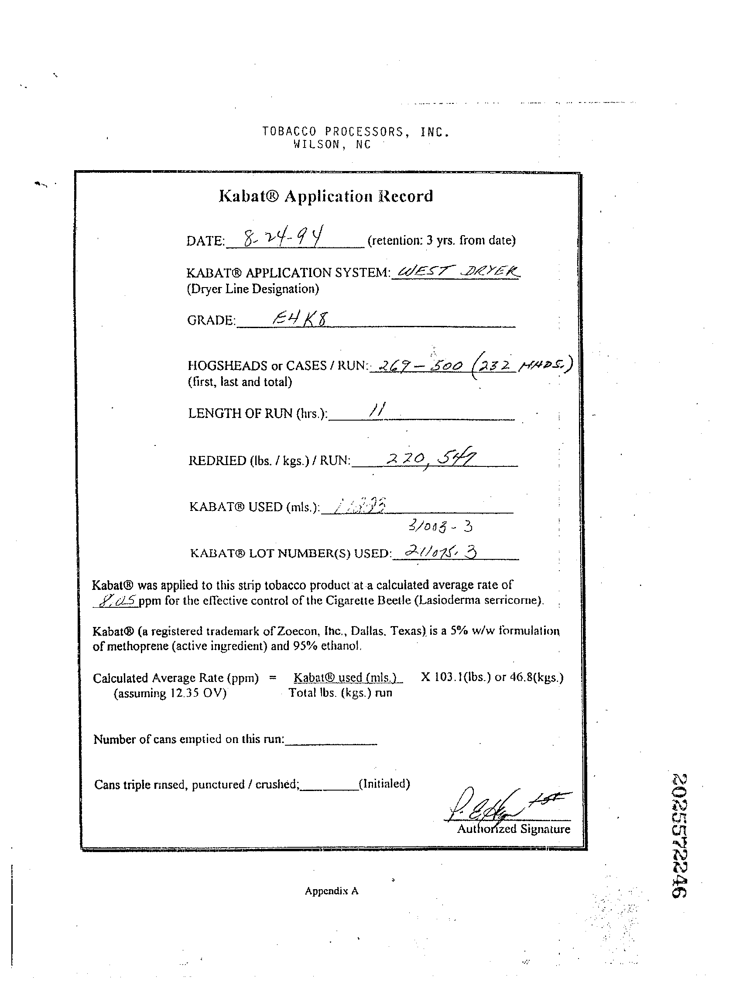 TOBACCO PROCESSORS, INC.
WILSON, NC
Kabat® Application Record
DATE: 8-24-94 (retention: 3 yrs. from date)
KABAT® APPLICATION SYSTEM: WEST DRYER
(Dryer Line Designation)
GRADE: E4K8
HOGSHEADS or CASES / RUN: 269-500 (232 HHDS.)
(first, last and total)
LENGTH OF RUN (hrs.): 11
REDRIED (lbs. / kgs.) / RUN: 220,547
KABAT® USED (mls.):
31003-3
KABAT® LOT NUMBER(S) USED: 211075-3
Kabat® was applied to this strip tobacco product at a calculated average rate of
ppm for the effective control of the Cigarette Beetle (Lasioderma serricorne).
Kabat® (a registered trademark of Zoecon, Inc., Dallas, Texas) is a 5% w/w formulation
of methoprene (active ingredient) and 95% ethanol.
Calculated Average Rate (ppm) = Kabat® used (mls.) X 103.1(lbs.) or 46.8(kgs.)
(assuming 12.35 OV) Total lbs. (kgs.) run
Number of cans emptied on this run:
Cans triple rinsed, punctured / crushed; (Initialed)
Authorized Signature
Appendix A
2025572246